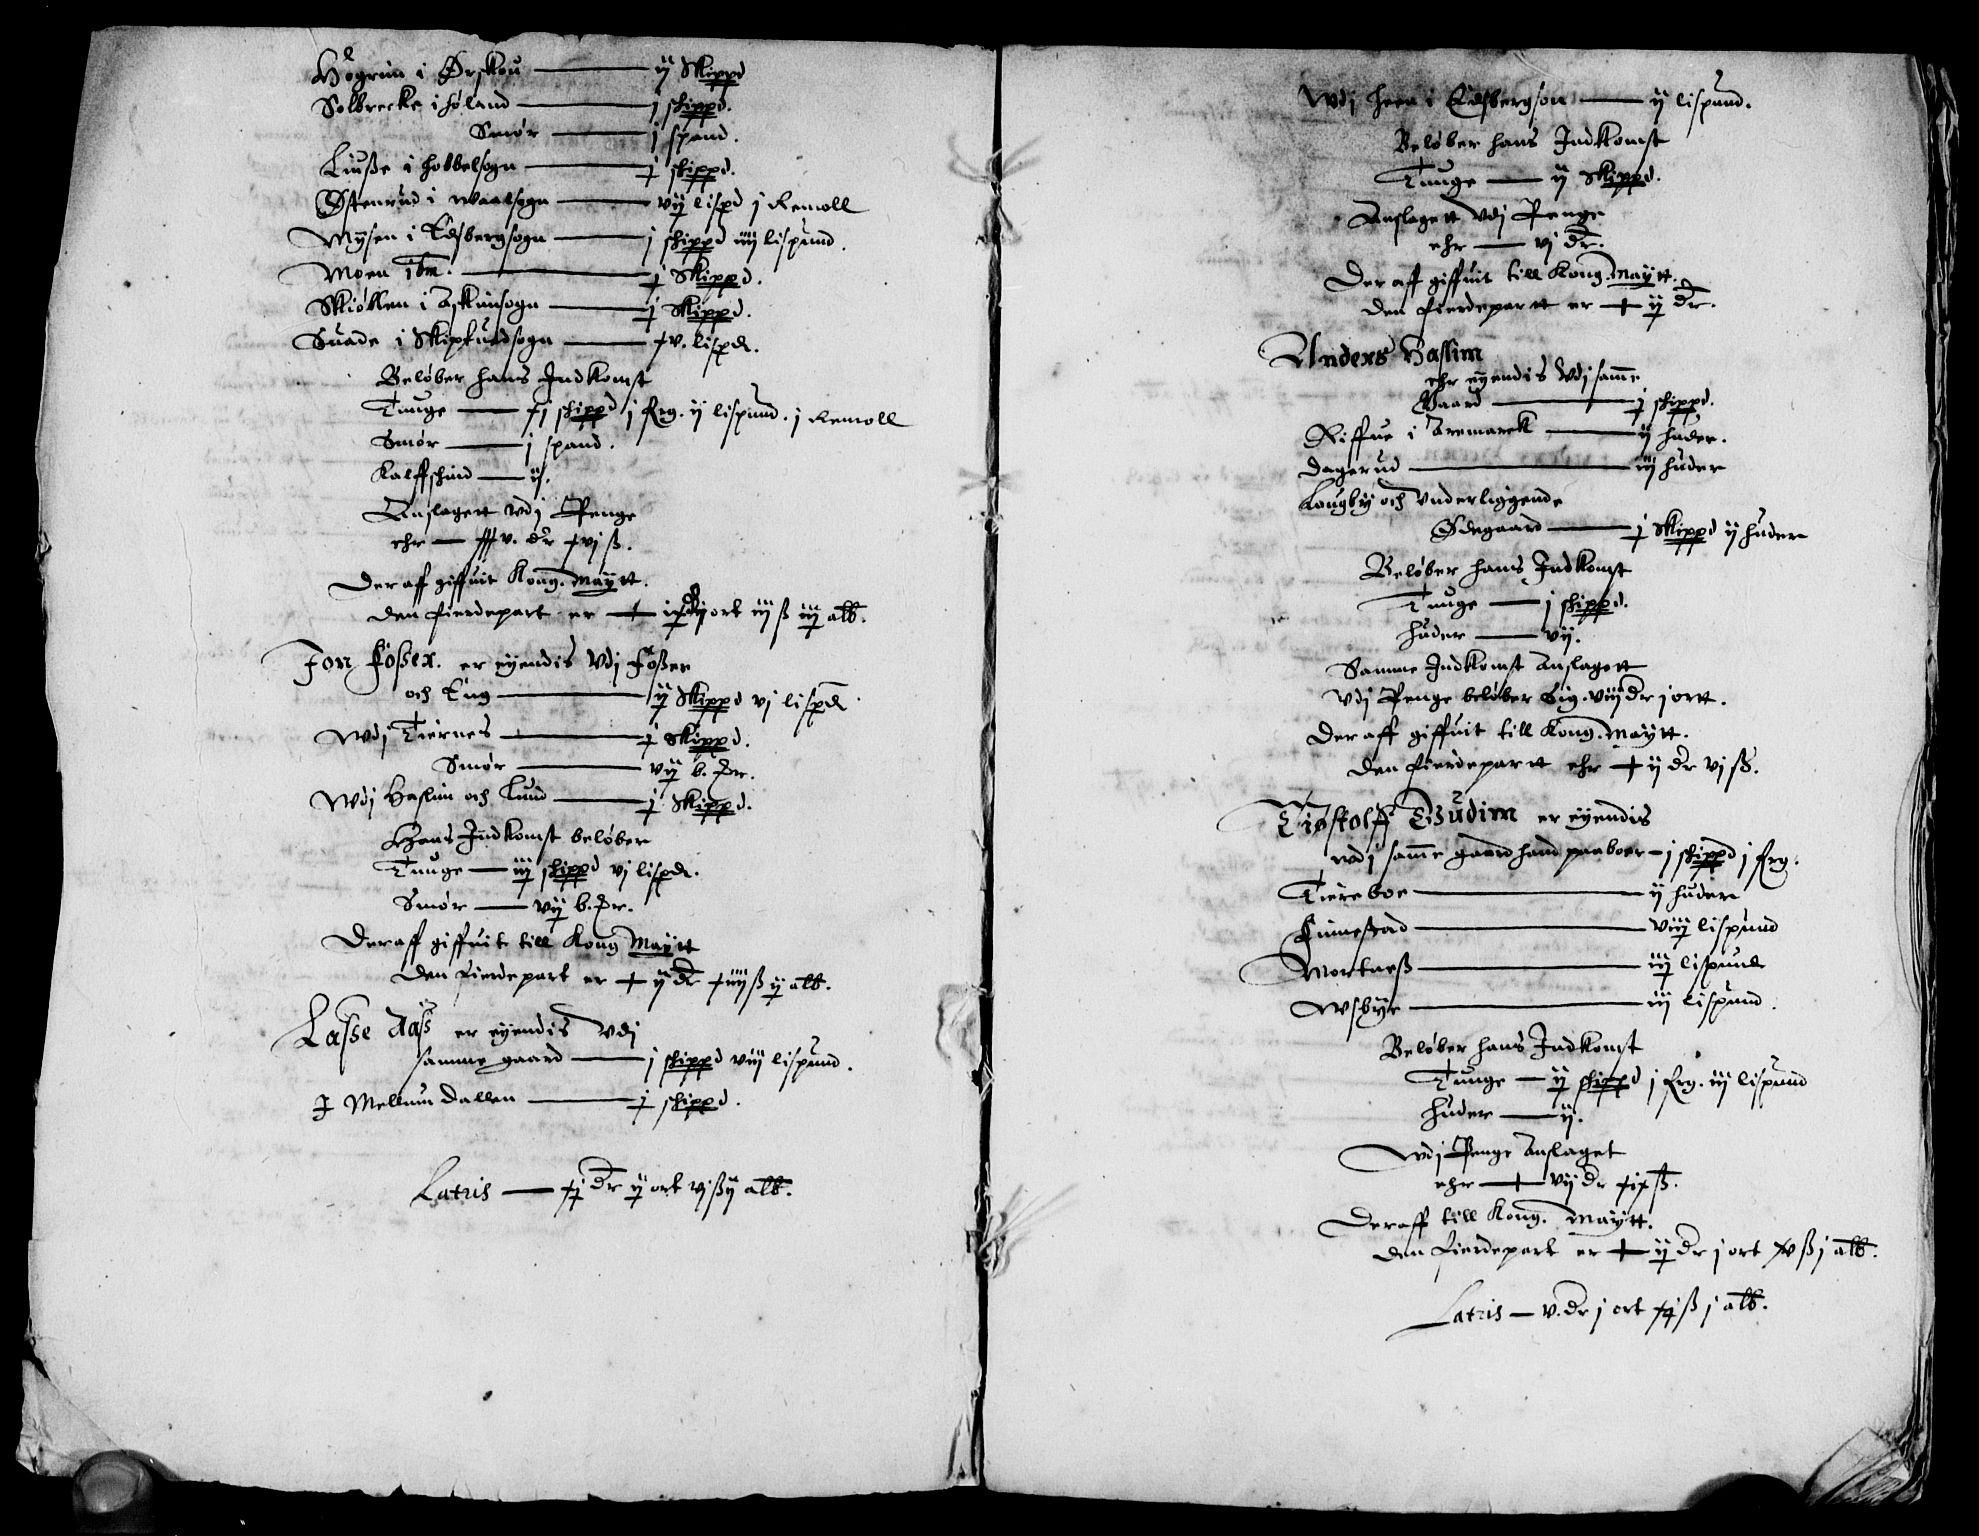 Høgrim i Ørskou — ij Skippd
Solbrecke i Høland — j skippd.
Smør — j spand.
Liusße i Hobbelsogn — ɉ skippd.
Østenrud i Waalsogn — vij lispd j Remoll
Mysen i Edsbergsogn — j skippd iiij lispund.
Moen ibm. — ɉ Skippd.
Skiølben i Askimsogn — ɉ Skippd.
Suade i Skiptuedsogn — xv. lispd.
Beløber hans Indkomst
Tunge — xj skippd j frg. ij lispund. j Remoll
Smør — j spand.
Kalffskind — ij.
Anslagett wdj Penge
ehr — xxxv. dr xvj ß.
Der aff giffuit Kong. Maytt.
den fierdepart er — ort iij ß iij alb.
Jon Foßer. er eyendis Vdj Foßer
och Eng — ij Skippd vj lispd.
Wdj Tiernes — ɉ Skippd.
Smør — vij b. pr.
Wdj Haslim och Lund — ɉ Skippd.
Hans Indkomst beløber
Tunge — iij skippd vj lispd.
Smør — vij b. pr.
Der aff giffuit till Kong Maytt
den fierdepart er — ij dr xiiij ß ij alb.
Laße Aaß er eyendis vdj
samme gaard — j skippd viij lispund.
I Mellum Dallen — ɉ skippd.
Latris — xj dr ij ort vj ß ij alb.
Wdj Heen i Edsbergson — ij lispund.
Beløber hans Indkomst
Tunge — ij Skippd.
Anslagett Vdj Penge
ehr — vj dr.
Der aff giffuit till Kong. Maytt.
den fierdepartt er — ij dr.
Anders Haslim
ehr eyendis Vdj samme
Gaard — ɉ skippd.
Riffue i Aremarck — ij huder.
Dagerud — iij huder
Lougby och vnderliggende
Ødegaard — ɉ Skippd ij huder
Beløber hans Indkomst
Tunge — j skippd.
Huder — vij.
Samme Indkomst Anslagett
Vdj Penge beløber Sig. viij dr j ortt.
Der aff giffuit till Kong. Maytt.
den fierdepartt ehr — ij dr vj ß.
Tiøstolff Gudim er eyendis
vdj samme gaard hand paaboer — j skippd j frg.
Tiereboe — ij huder
Finnestad — viij lispund
Mortneß — iij lispund
Wsbye — iij lispund.
Beløber hans Indkomst
Tunge — ij skippd j frg. iij lispund
Huder — ij.
Wdj Penge Anslaget
ehr — vij dr xix ß.
Der aff till Kong. Maytt.
den fierdepart er — ij dr j ort xv ß j alb.
Latris — v. dr j ort xj ß j alb.